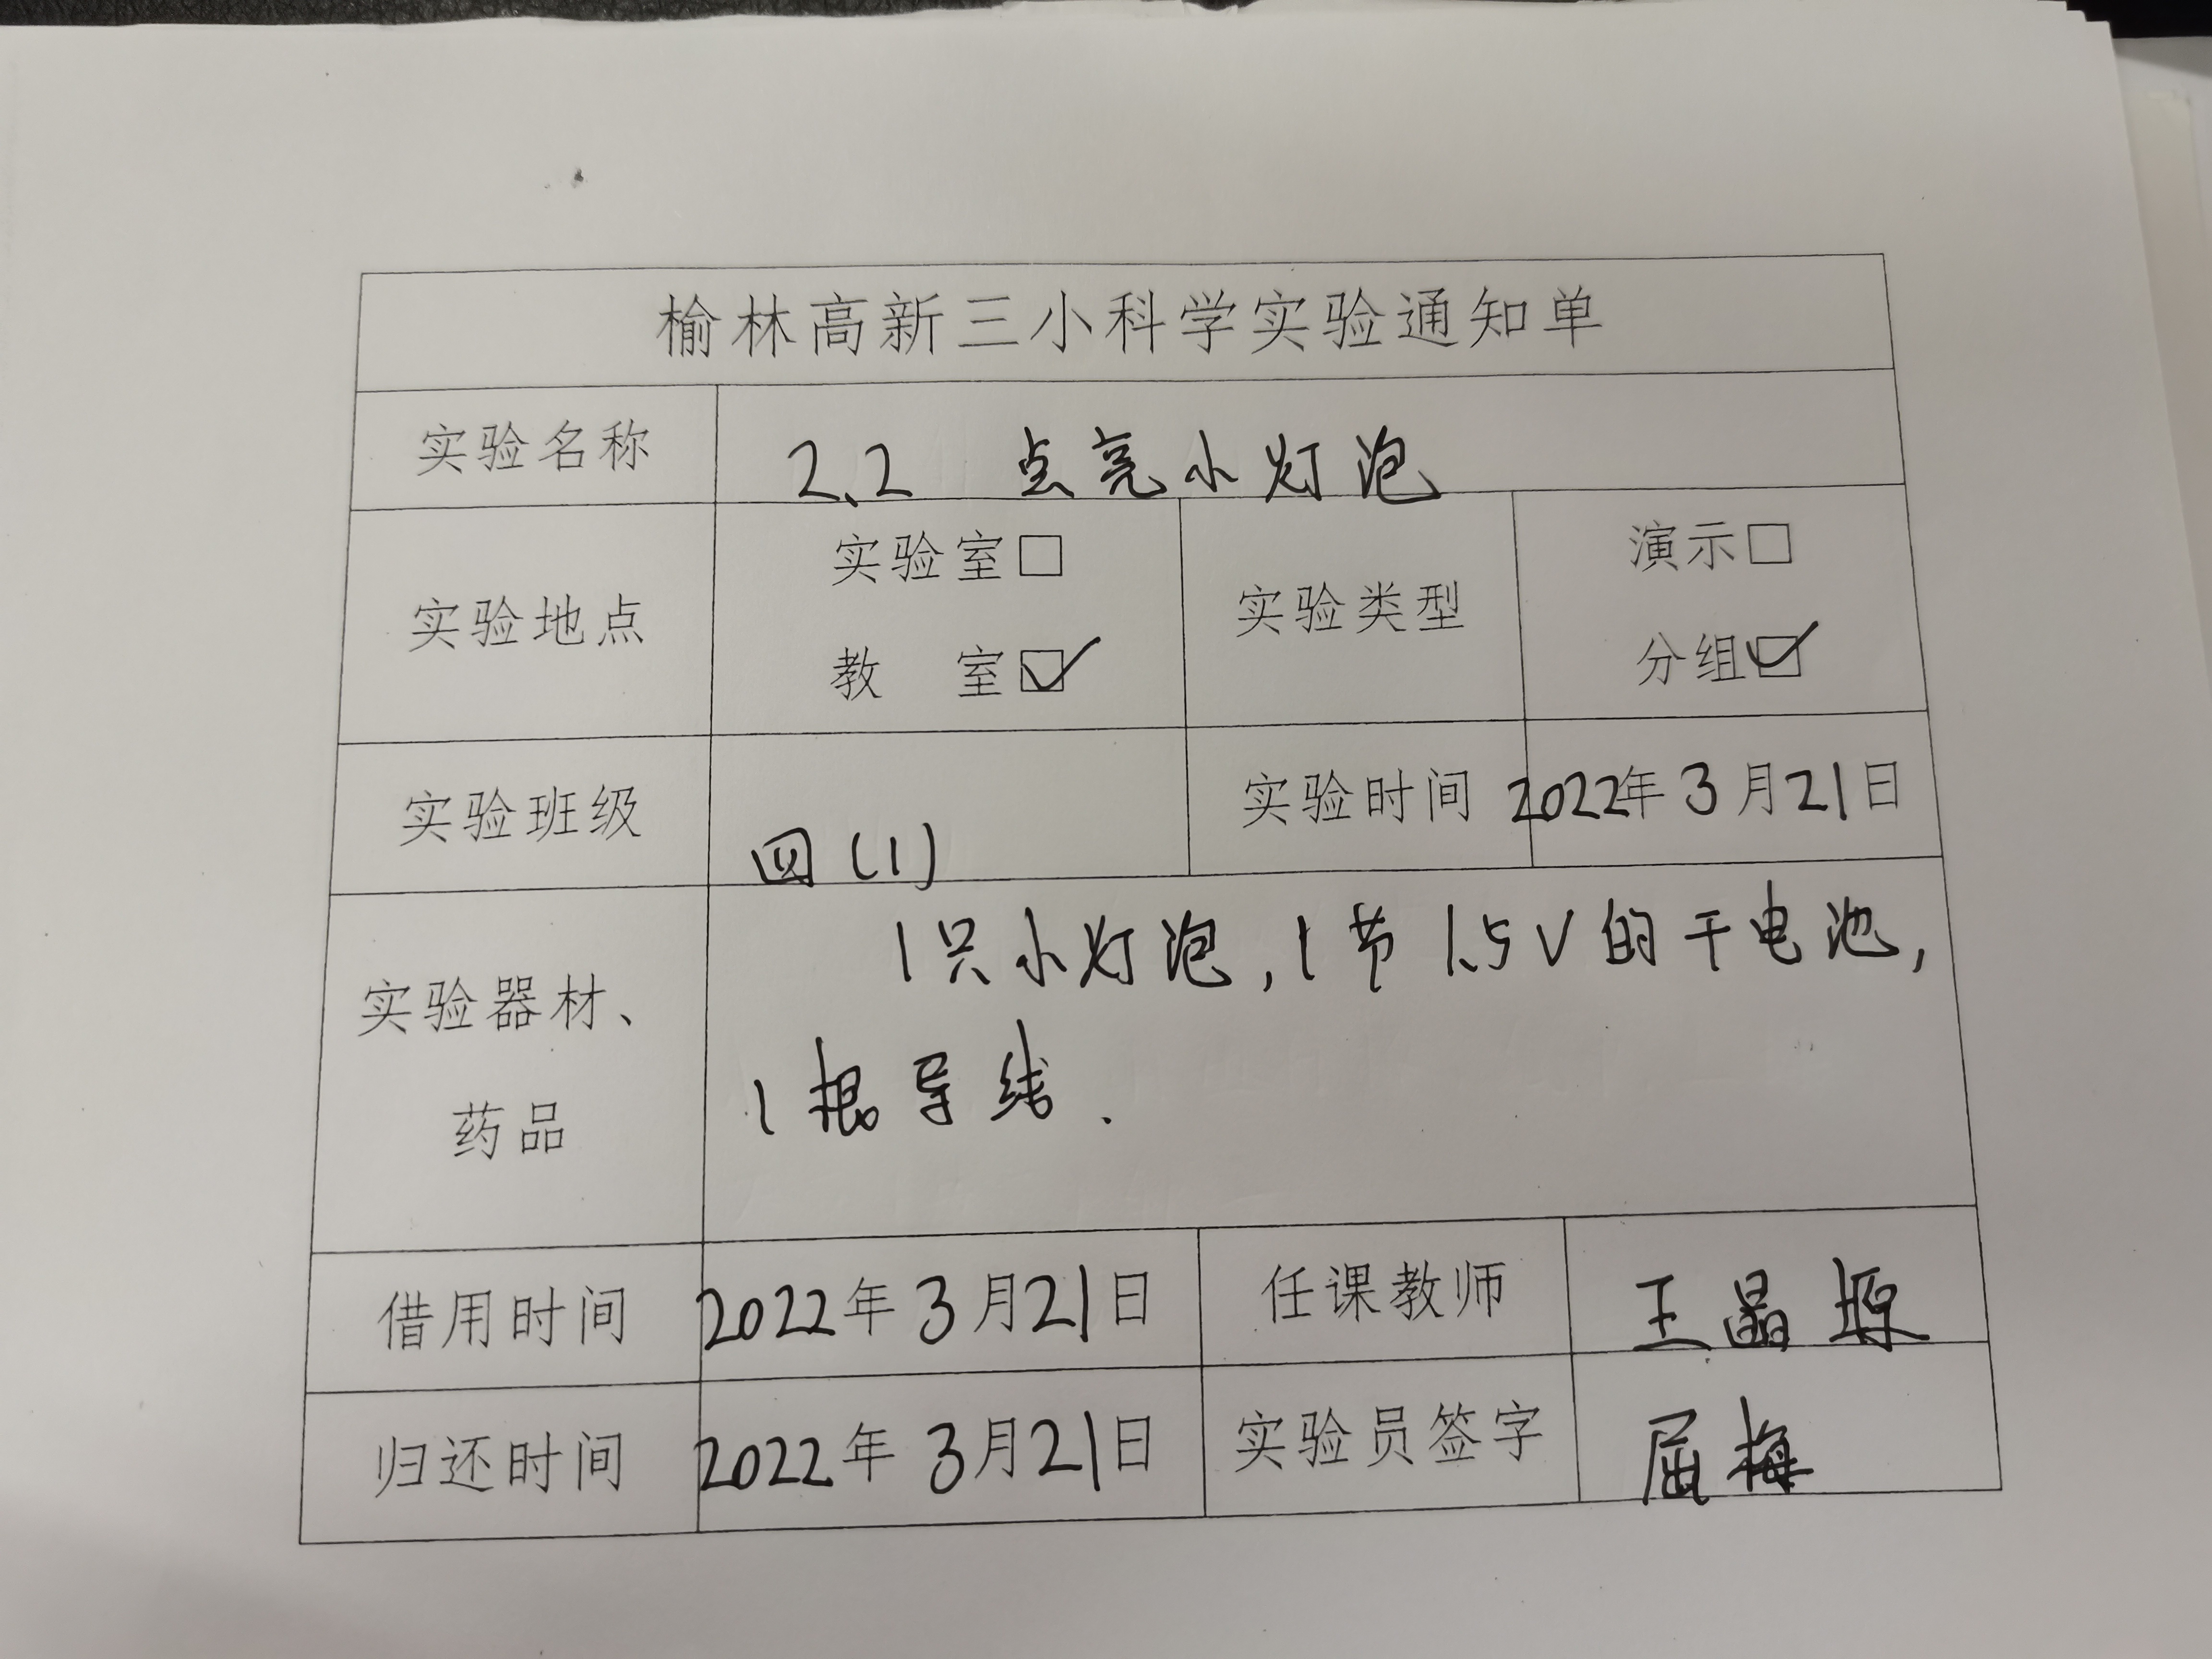 榆林高新三小科学实验通知单
实验名称 2.2 点亮小灯泡
实验地点 实验室□ 教 室☑ 实验类型 演示□ 分组☑
实验班级 四(1) 实验时间 2022年3月21日
实验器材、药品
1只小灯泡,1节1.5V的干电池,
1根导线.
借用时间 2022年3月21日 任课教师 王晶
归还时间 2022年3月21日 实验员签字 屈梅